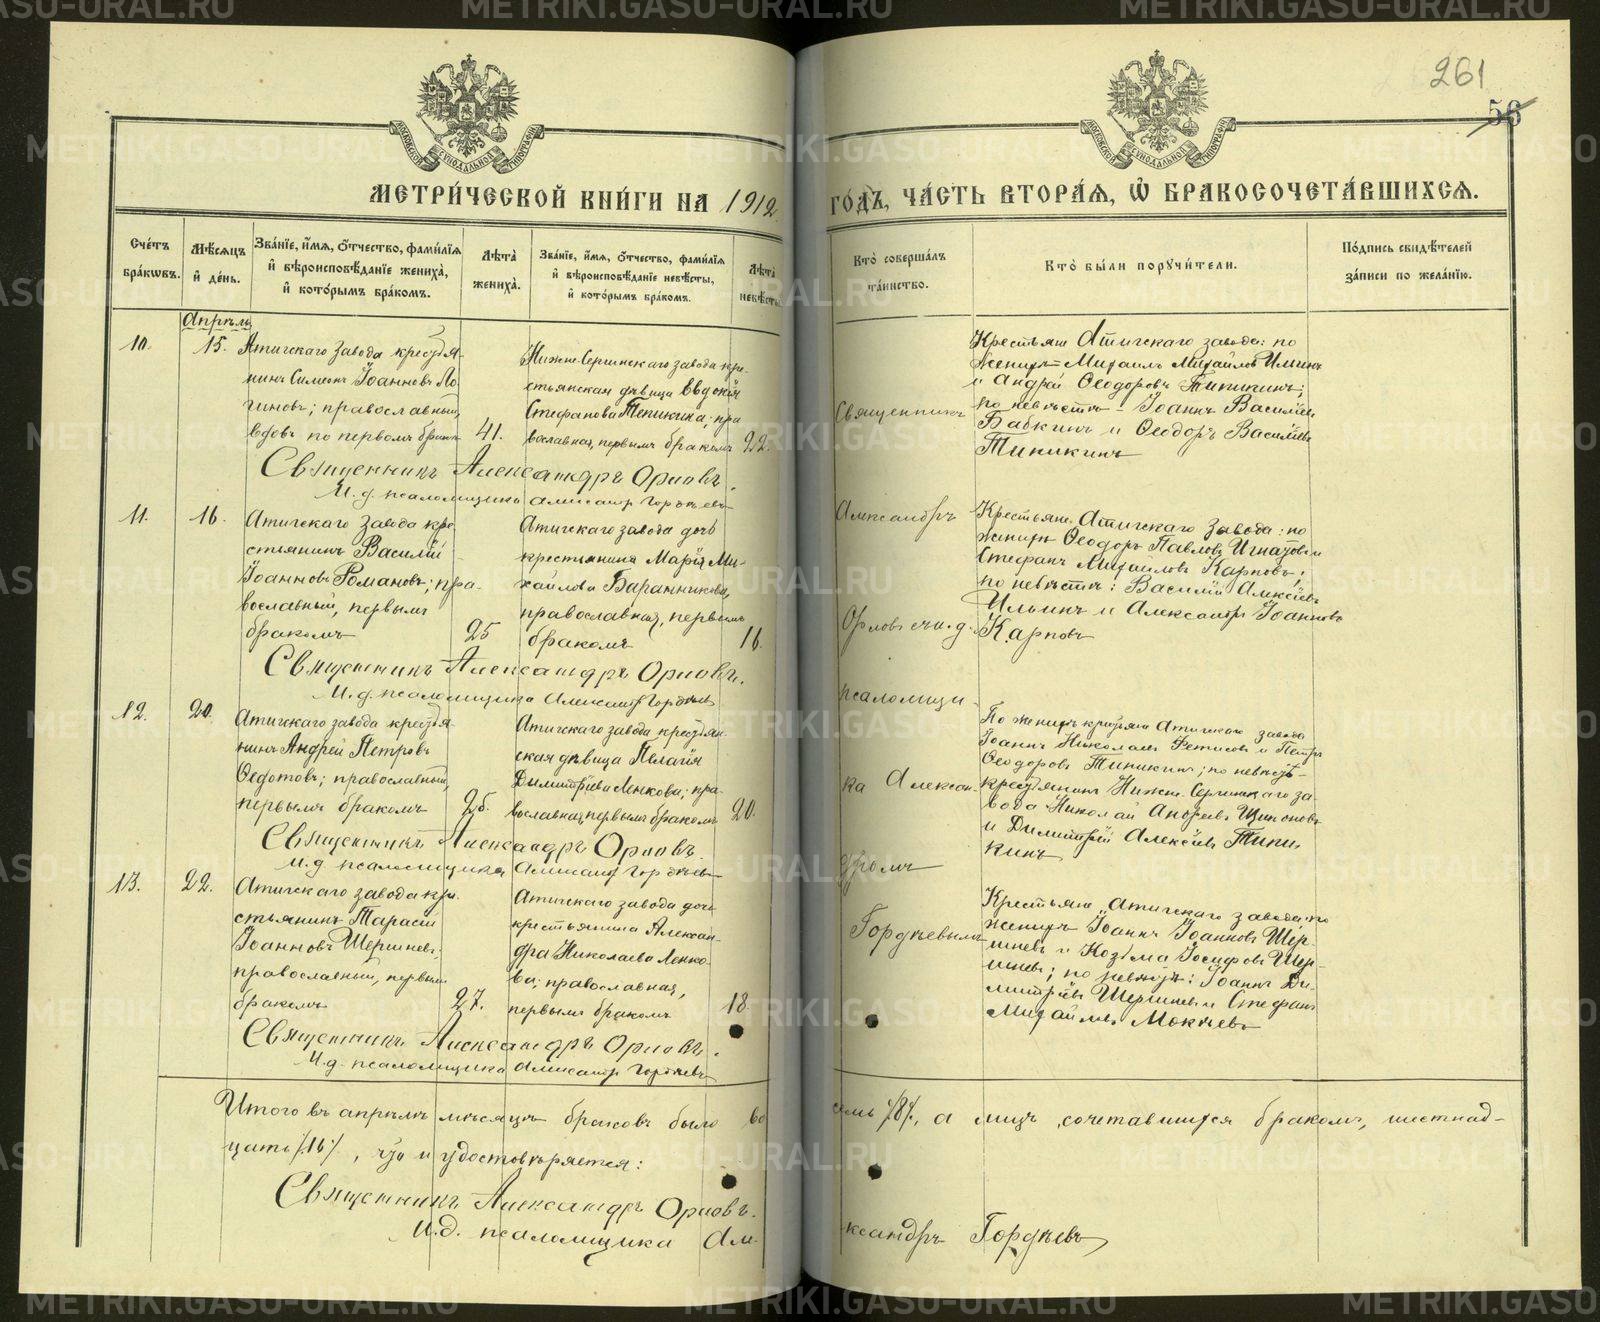 261
56
МЕТРИЧЕСКОЙ КНИГИ НА 1912 ГОДЪ, ЧАСТЬ ВТОРАЯ, Ѡ БРАКОСОЧЕТАВШИХСЯ.
Счетъ браковъ.
Мѣсяцъ и день.
Званіе, имя, отчество, фамилія и вѣроисповѣданіе жениха, и которымъ бракомъ.
Лѣта жениха.
Званіе, имя, отчество, фамилія и вѣроисповѣданіе невѣсты, и которымъ бракомъ.
Лѣта невѣсты
Кто совершалъ таинство.
Кто были поручители.
Подпись свидѣтелей записи по желанію.
Апрѣль
10.
15.
Атигскаго завода крестья-
нинъ Симеонъ Іоанновъ Ло-
гиновъ; православный,
вдовъ по первомъ бракѣ
41.
Нижне-Сергинскаго завода кре-
стьянская дѣвица Евдокія
Стефанова Типикина; пра-
вославная, первымъ бракомъ
22.
Крестьяне Атигскаго завода: по
женихѣ Михаилъ Михайловъ Илинъ
и Андрей Ѳеодоровъ Типикинъ;
по невѣстѣ – Іоаннъ Василіевъ
Бабкинъ и Ѳеодоръ Василіевъ
Типикинъ
Священникъ Александръ Орловъ.
И. д. псаломщика Александръ Гордѣевъ
11.
16.
Атигскаго завода кре-
стьянинъ Василій
Іоанновъ Романовъ; пра-
вославный, первымъ
бракомъ
25
Атигскаго завода дочь
крестьянина Марія Ми-
хайлова Баранникова,
православная, первымъ
бракомъ
16.
Крестьяне Атигскаго завода: по
женихѣ Ѳеодоръ Павловъ Игнатовъ и
Стефанъ Михаиловъ Карповъ;
по невѣстѣ: Василій Алексіевъ
Ильинъ и Александръ Іоанновъ
Карповъ
Священникъ Александръ Орловъ.
И. д. псаломщика Александръ Гордѣевъ
12.
20.
Атигскаго завода крестья-
нинъ Андрей Петровъ
Ѳедотовъ; православный,
первымъ бракомъ
25.
Атигскаго завода крестьян-
ская дѣвица Пелагія
Димитріева Ленкова; пра-
вославная, первымъ бракомъ
20.
По женихѣ крестьяне Атигскаго завода
Іоаннъ Николаевъ Фетисовъ и Петръ
Ѳеодоровъ Типикинъ; по невѣстѣ –
крестьянинъ Нижне-Сергинскаго за-
вода Николай Андреевъ
и Димитрій Алексіевъ Типи-
кинъ
Священникъ Александръ Орловъ.
И. д. псаломщика Александръ Гордѣевъ
13.
22.
Атигскаго завода кре-
стьянинъ Тарасій
Іоанновъ Шершневъ;
православный, первымъ
бракомъ
27.
Атигскаго завода дочь
крестьянина Алексан-
дра Николаева Ленко-
ва; православная,
первымъ бракомъ
18.
Крестьяне Атигскаго завода: по
женихѣ Іоаннъ Іоанновъ Шер-
шневъ и Козьма Іосифовъ Шер-
шневъ; по невѣстѣ: Іоаннъ Ди-
митріевъ Шершневъ и Стефанъ
Михайловъ Мокѣевъ
Священникъ Александръ Орловъ.
И. д. псаломщика Александръ Гордѣевъ
Священникъ
Александръ
Орловъ съ и. д.
псаломщи-
ка Алексан-
дромъ
Гордѣевымъ
Итого въ апрѣлѣ мѣсяцѣ браковъ было во семь /8/, а лицъ, сочетавшихся бракомъ, шестнад-
цать /16/, что и удостовѣряется:
Священникъ Александръ Орловъ.
И. д. псаломщика Але ксандръ Гордѣевъ